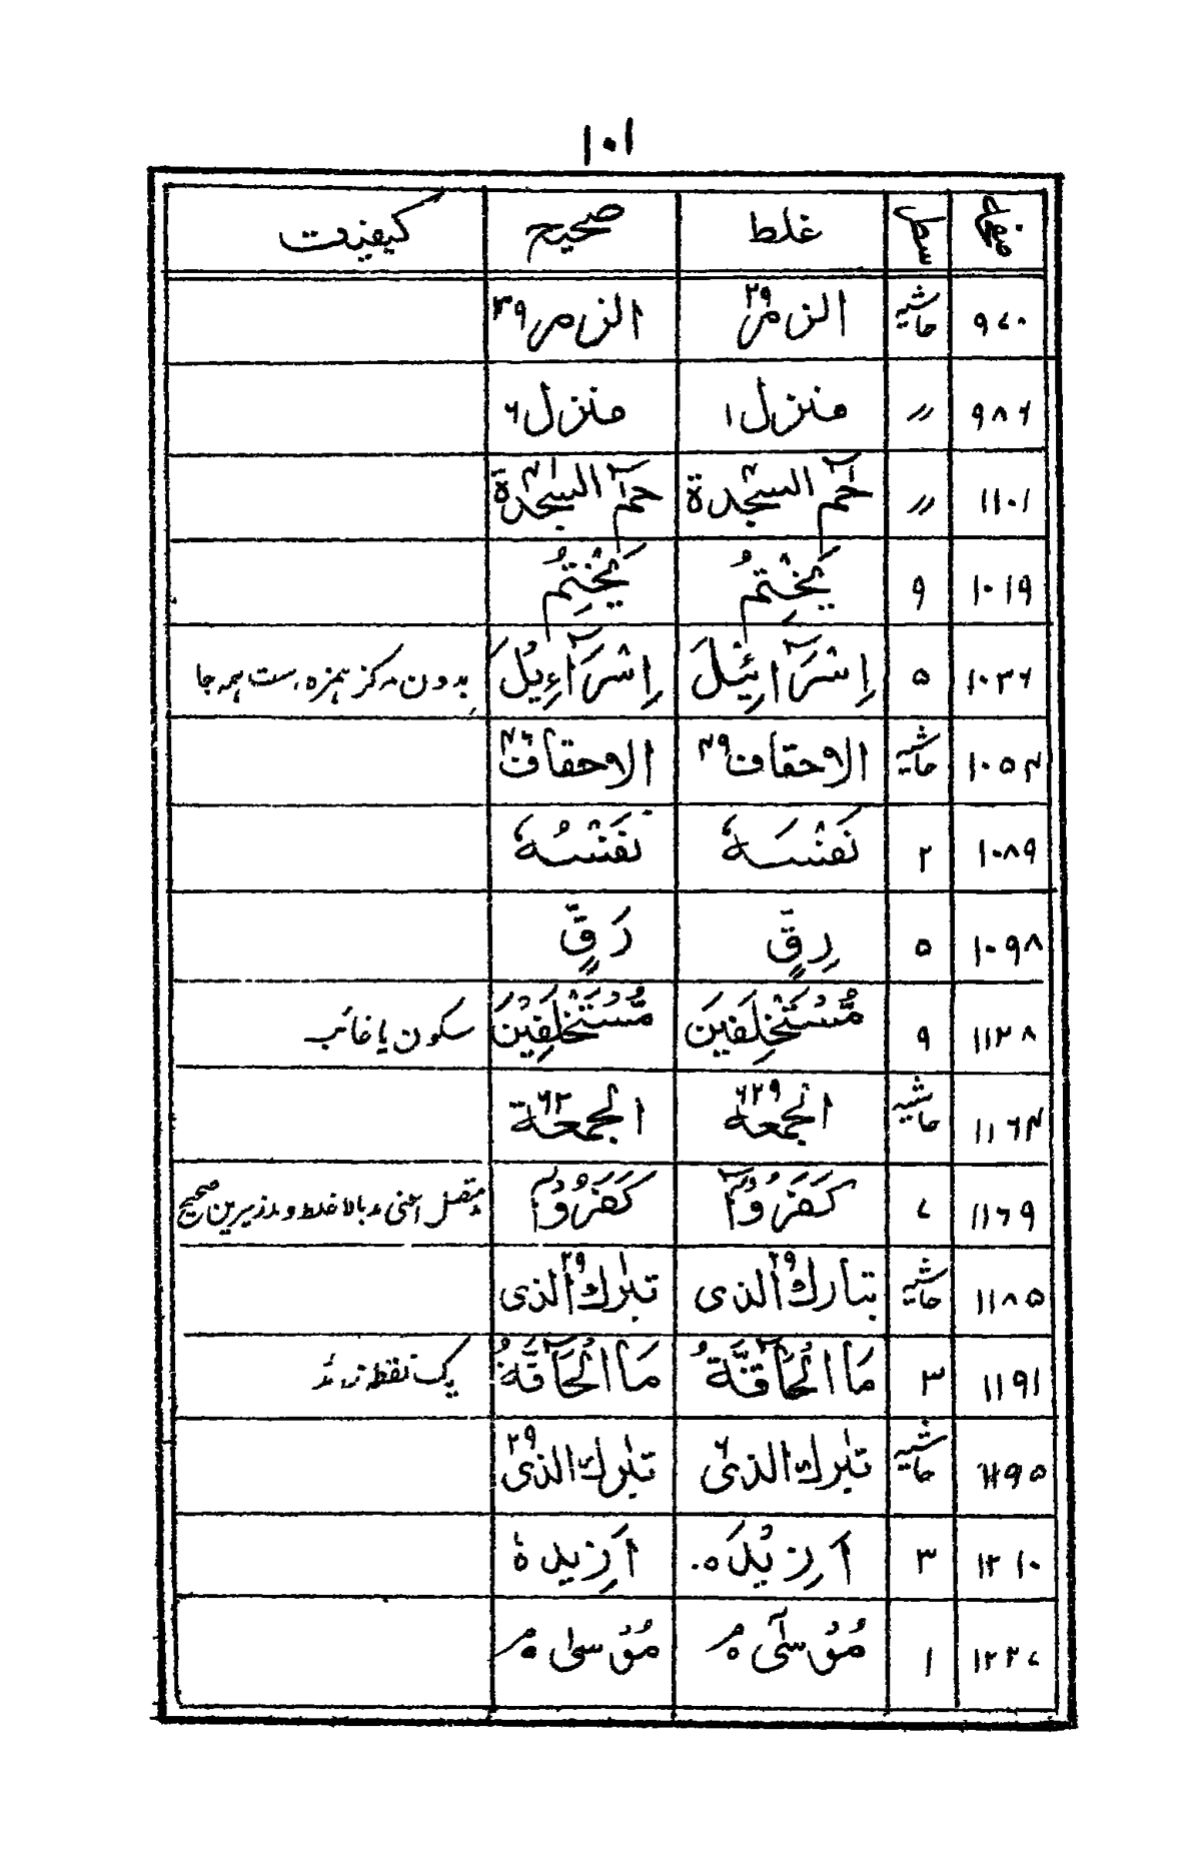 ۱۰۱
صفحہ سطر غلط صحیح کیفیت
۹۷۰ حاشیہ الزمر ۲۹ الزمر ۳۹
۹۸۶ // منزل ۱ منزل ۶
۱۱۰۱ // حٰمٓ السجدة حٰمٓ السجدة
۱۰۱۹ ۹ يَخْتِمُ يَخْتِمُ
۱۰۳۶ ۵ اِسْرَآائِيْلَ اِسْرَآءِيْلَ بدون مرکز ہمزہ است ہمہ جا
۱۰۵۴ حاشیہ الاحقاف ۴۹ الاحقاف ۴۶
۱۰۸۹ ۲ نَفْسَهٗ نَفْسُهٗ
۱۰۹۸ ۵ رِقٍّ رَقٍّ
۱۱۲۸ ۹ مُّسْتَخْلِفِينَ مُّسْتَخْلَفِيْنَ سکون یا غائب
۱۱۶۴ حاشیہ الجمعة ۶۲۹ الجمعة ۶۲
۱۱۶۹ ۷ كَفَرُوْٓا كَفَرُوْا
۱۱۸۵ حاشیہ تبارك الذى ۲۹ تبٰرك الذى ۲۹
۱۱۹۱ ۳ مَا الْحَآقَّةُ مَا الْحَآقَّةُ یک نقطہ زائد
۱۱۹۵ حاشیہ تبٰرك الذى ۶ تبٰرك الذى ۲۹
۱۲۱۰ ۳ اَزِيْدَ ه اَزِيدَ ه
۱۲۲۷ ۱ مُوْسٰٓى م مُوْسٰى م